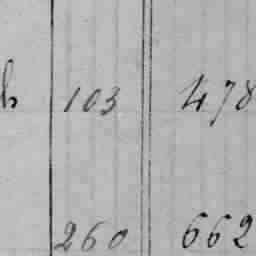 103 478
260 662